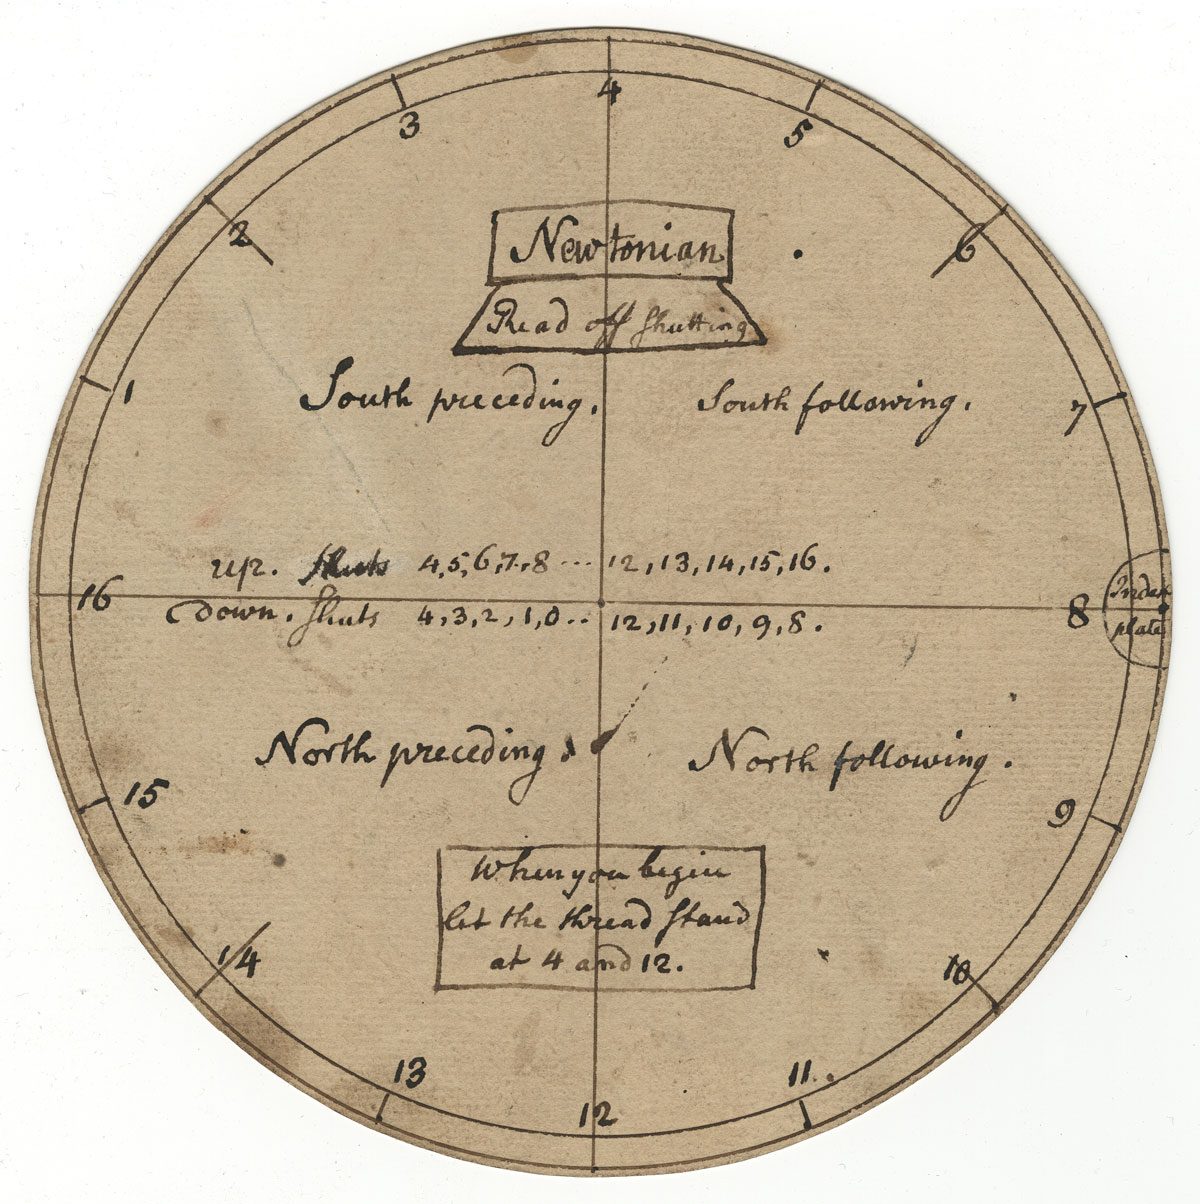 4
3
5
2
6
Newtonian
Read off shutting
1
South preceding.
South following.
7
up. shuts 4,5,6,7,8 ... 12,13,14,15,16.
16
Index
8
plate
Down. shuts 4,3,2,1,0.. 12,11,10,9,8.
North preceding.
North following.
15
9
When you begin
let the thread stand
at 4 and 12.
14
10
13
11.
12